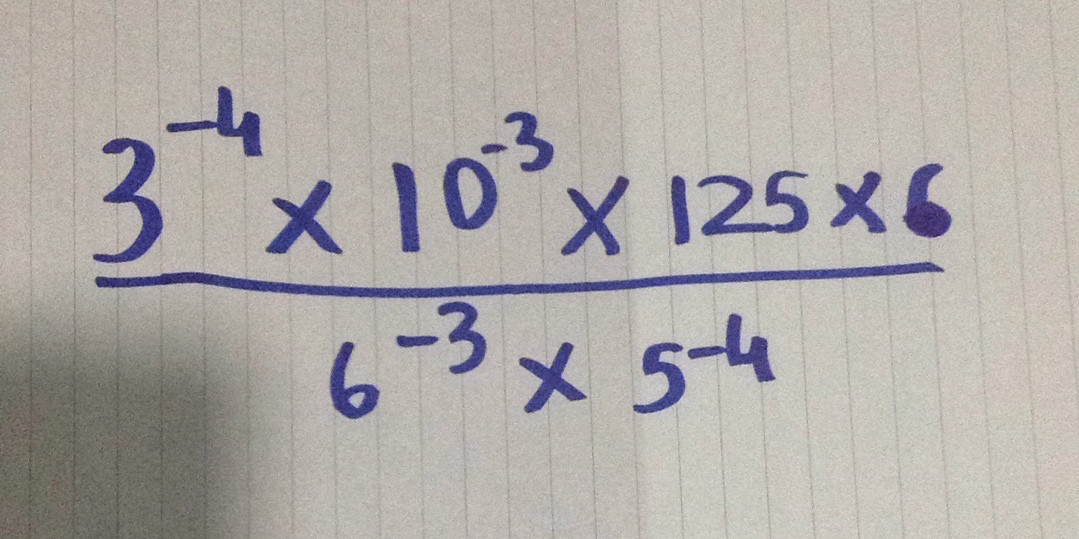 3⁻⁴ × 10⁻³ × 125 × 6
6⁻³ × 5⁻⁴